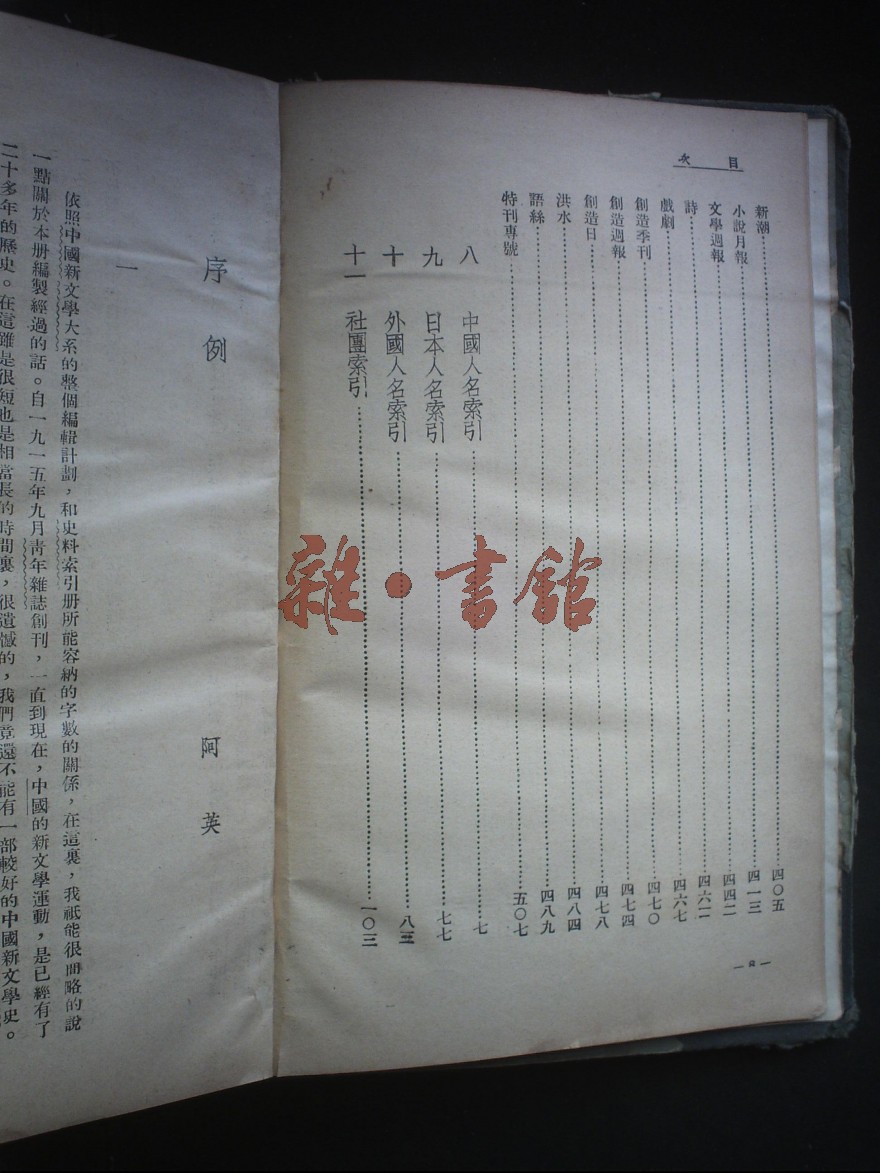 目次
新潮 四〇五
小說月報 四一三
文學週報 四四二
詩 四六二
戲劇 四六七
創造季刊 四七〇
創造週報 四七四
創造日 四七八
洪水 四八四
語絲 四八九
特刊專號 五〇七
八 中國人名索引 七
九 日本人名索引 七七
十 外國人名索引 八三
十一 社團索引 一〇三
序例
阿英
一
依照中國新文學大系的整個編輯計劃，和史料索引册所能容納的字數的關係，在這裏，我祇能很簡略的說
一點關於本册編製經過的話。自一九一五年九月青年雜誌創刊，一直到現在，中國的新文學運動，是已經有了
二十多年的歷史。在這雖是很短也是相當長的時間裏，很遺憾的，我們竟還不能有一部較好的中國新文學史。
雜·書館